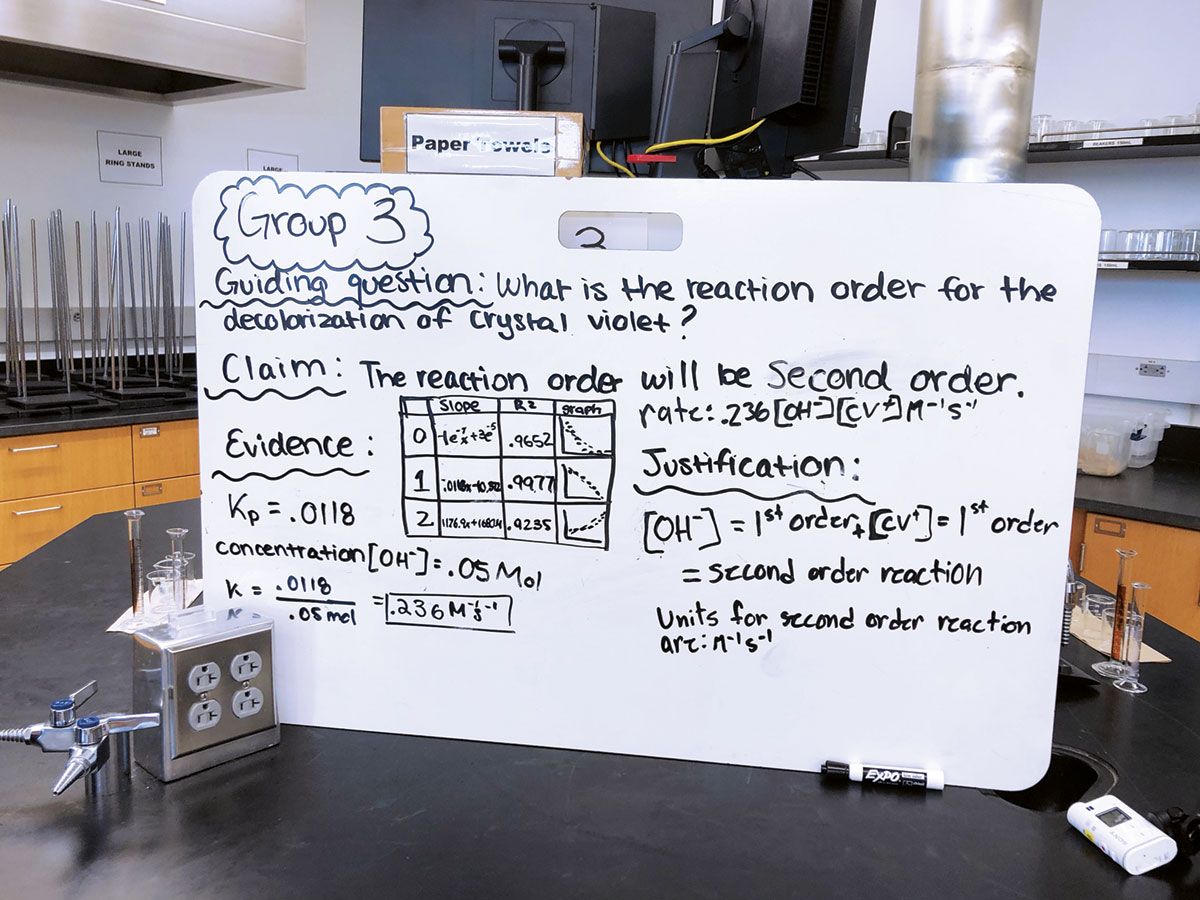 LARGE
RING STANDS
LARGE
Paper Towels
BEAKERS 150mL
Group 3
3
Guiding question: What is the reaction order for the
decolorization of Crystal violet?
Claim: The reaction order will be Second order.
rate: .236[OH⁻][CV⁺]M⁻¹s⁻¹
Evidence:
Slope R2 graph
0 .9652
1 .9977
2 .9235
Kp = .0118
concentration [OH⁻] = .05 Mol
K = .0118 / .05 mol = .236 M⁻¹s⁻¹
Justification:
[OH⁻] = 1st order + [CV⁺] = 1st order
= second order reaction
Units for second order reaction
are: M⁻¹s⁻¹
EXPO
SONY